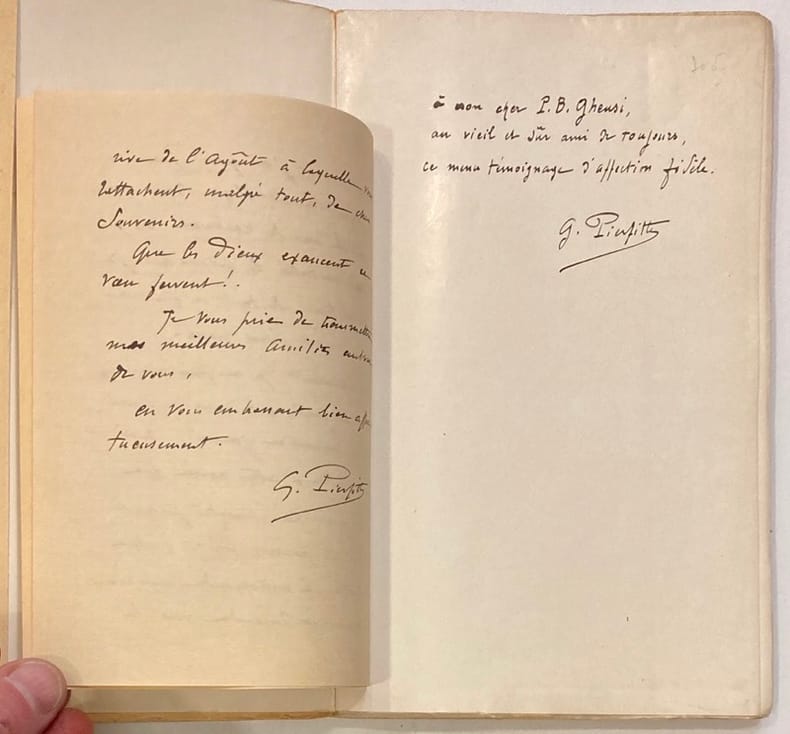 rive de l'Agoût à laquelle vous
rattachent, malgré tout, de chers
Souvenirs.
Que les Dieux exaucent ce
vœu fervent!.
Je vous prie de transmettre
mes meilleures Amitiés autour
de vous,
en vous embrassant bien affec
tueusement.
G. Pierfitte
à mon cher P. B. Gheusi,
au vieil et sûr ami de toujours,
ce menu témoignage d'affection fidèle.
G. Pierfitte